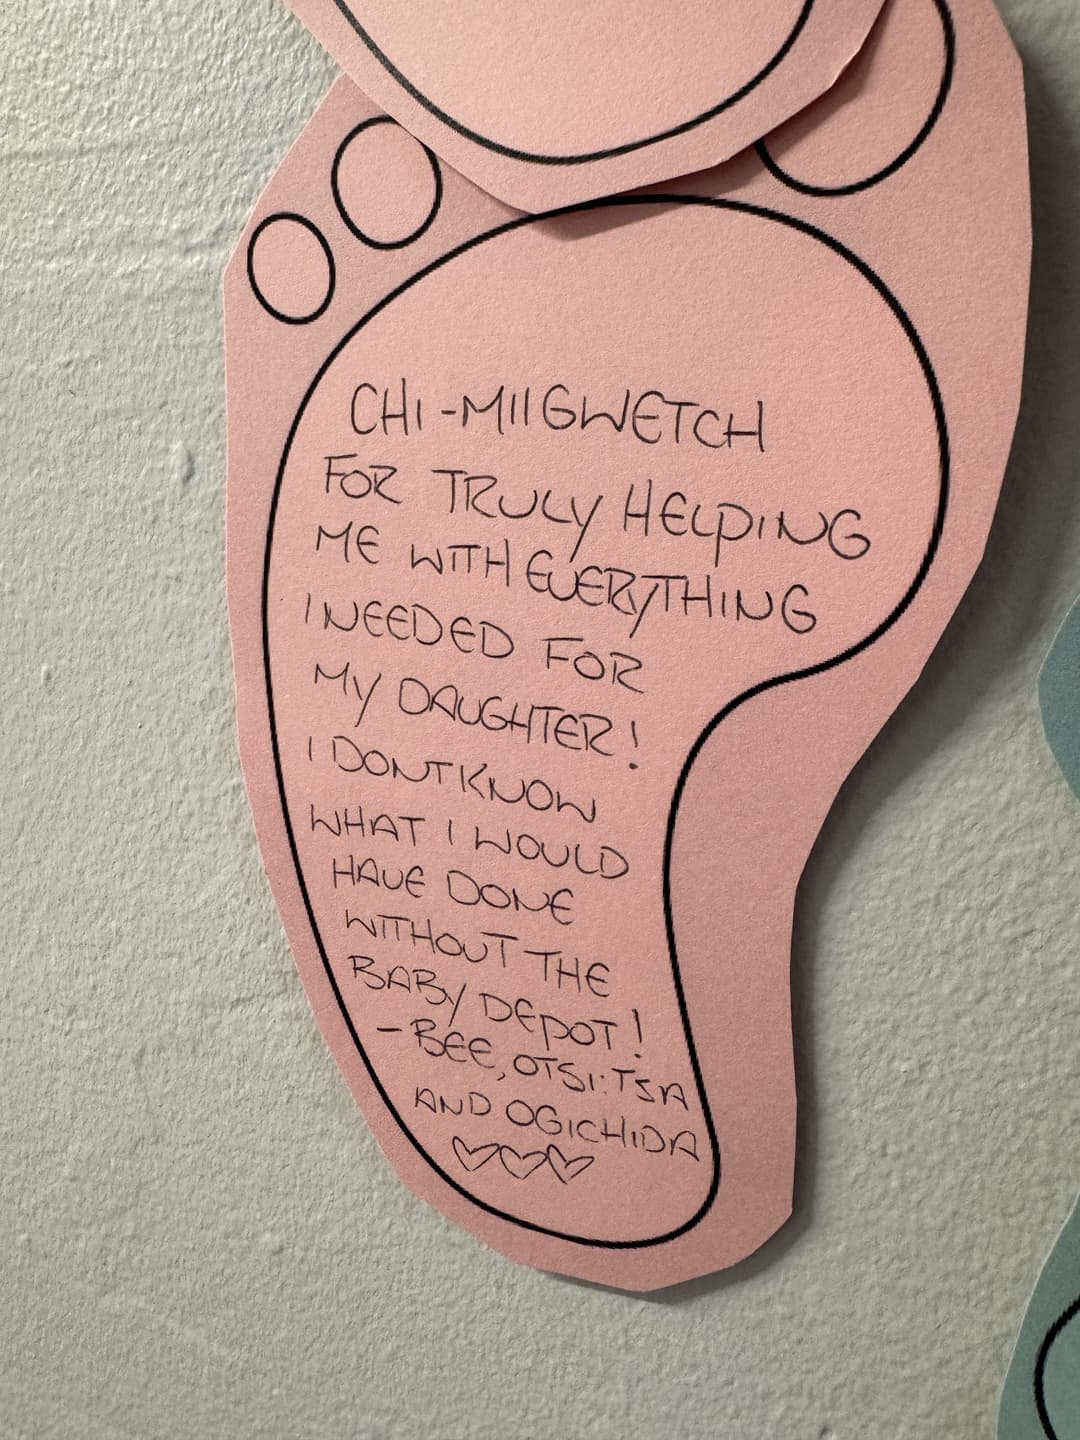 CHI-MIIGWETCH
FOR TRULY HELPING
ME WITH EVERYTHING
I NEEDED FOR
MY DAUGHTER!
I DONT KNOW
WHAT I WOULD
HAVE DONE
WITHOUT THE
BABY DEPOT!
-BEE, OTSI:TSA
AND OGICHIDA
♡♡♡